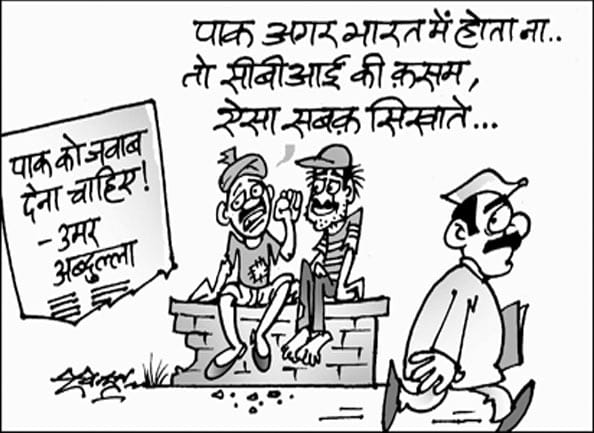 पाक अगर भारत में होता ना..
तो सीबीआई की क़सम,
ऐसा सबक़ सिखाते...
पाक को जवाब
देना चाहिए!
- उमर
अब्दुल्ला